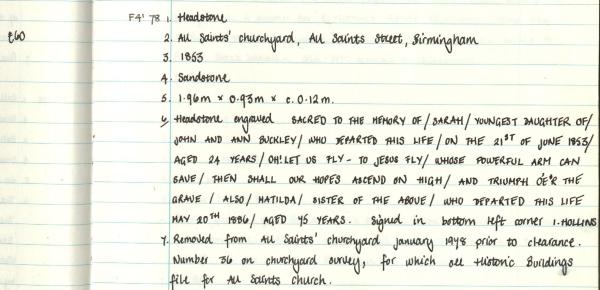 F4' 78 1. Headstone
£60 2. All Saints' churchyard, All Saints Street, Birmingham
3. 1853
4. Sandstone
5. 1.96m × 0.93m × c. 0.12m.
6. Headstone engraved SACRED TO THE MEMORY OF/ SARAH/ YOUNGEST DAUGHTER OF/
JOHN AND ANN BUCKLEY/ WHO DEPARTED THIS LIFE/ ON THE 21ST OF JUNE 1853/
AGED 24 YEARS/ OH! LET US FLY - TO JESUS FLY/ WHOSE POWERFUL ARM CAN
SAVE/ THEN SHALL OUR HOPES ASCEND ON HIGH/ AND TRIUMPH O'E'R THE
GRAVE/ ALSO/ MATILDA/ SISTER OF THE ABOVE/ WHO DEPARTED THIS LIFE
MAY 20TH 1886/ AGED 45 YEARS. Signed in bottom left corner I. HOLLINS
7. Removed from All Saints' churchyard January 1978 prior to clearance.
Number 36 on churchyard survey, for which see Historic Buildings
file for All Saints church.